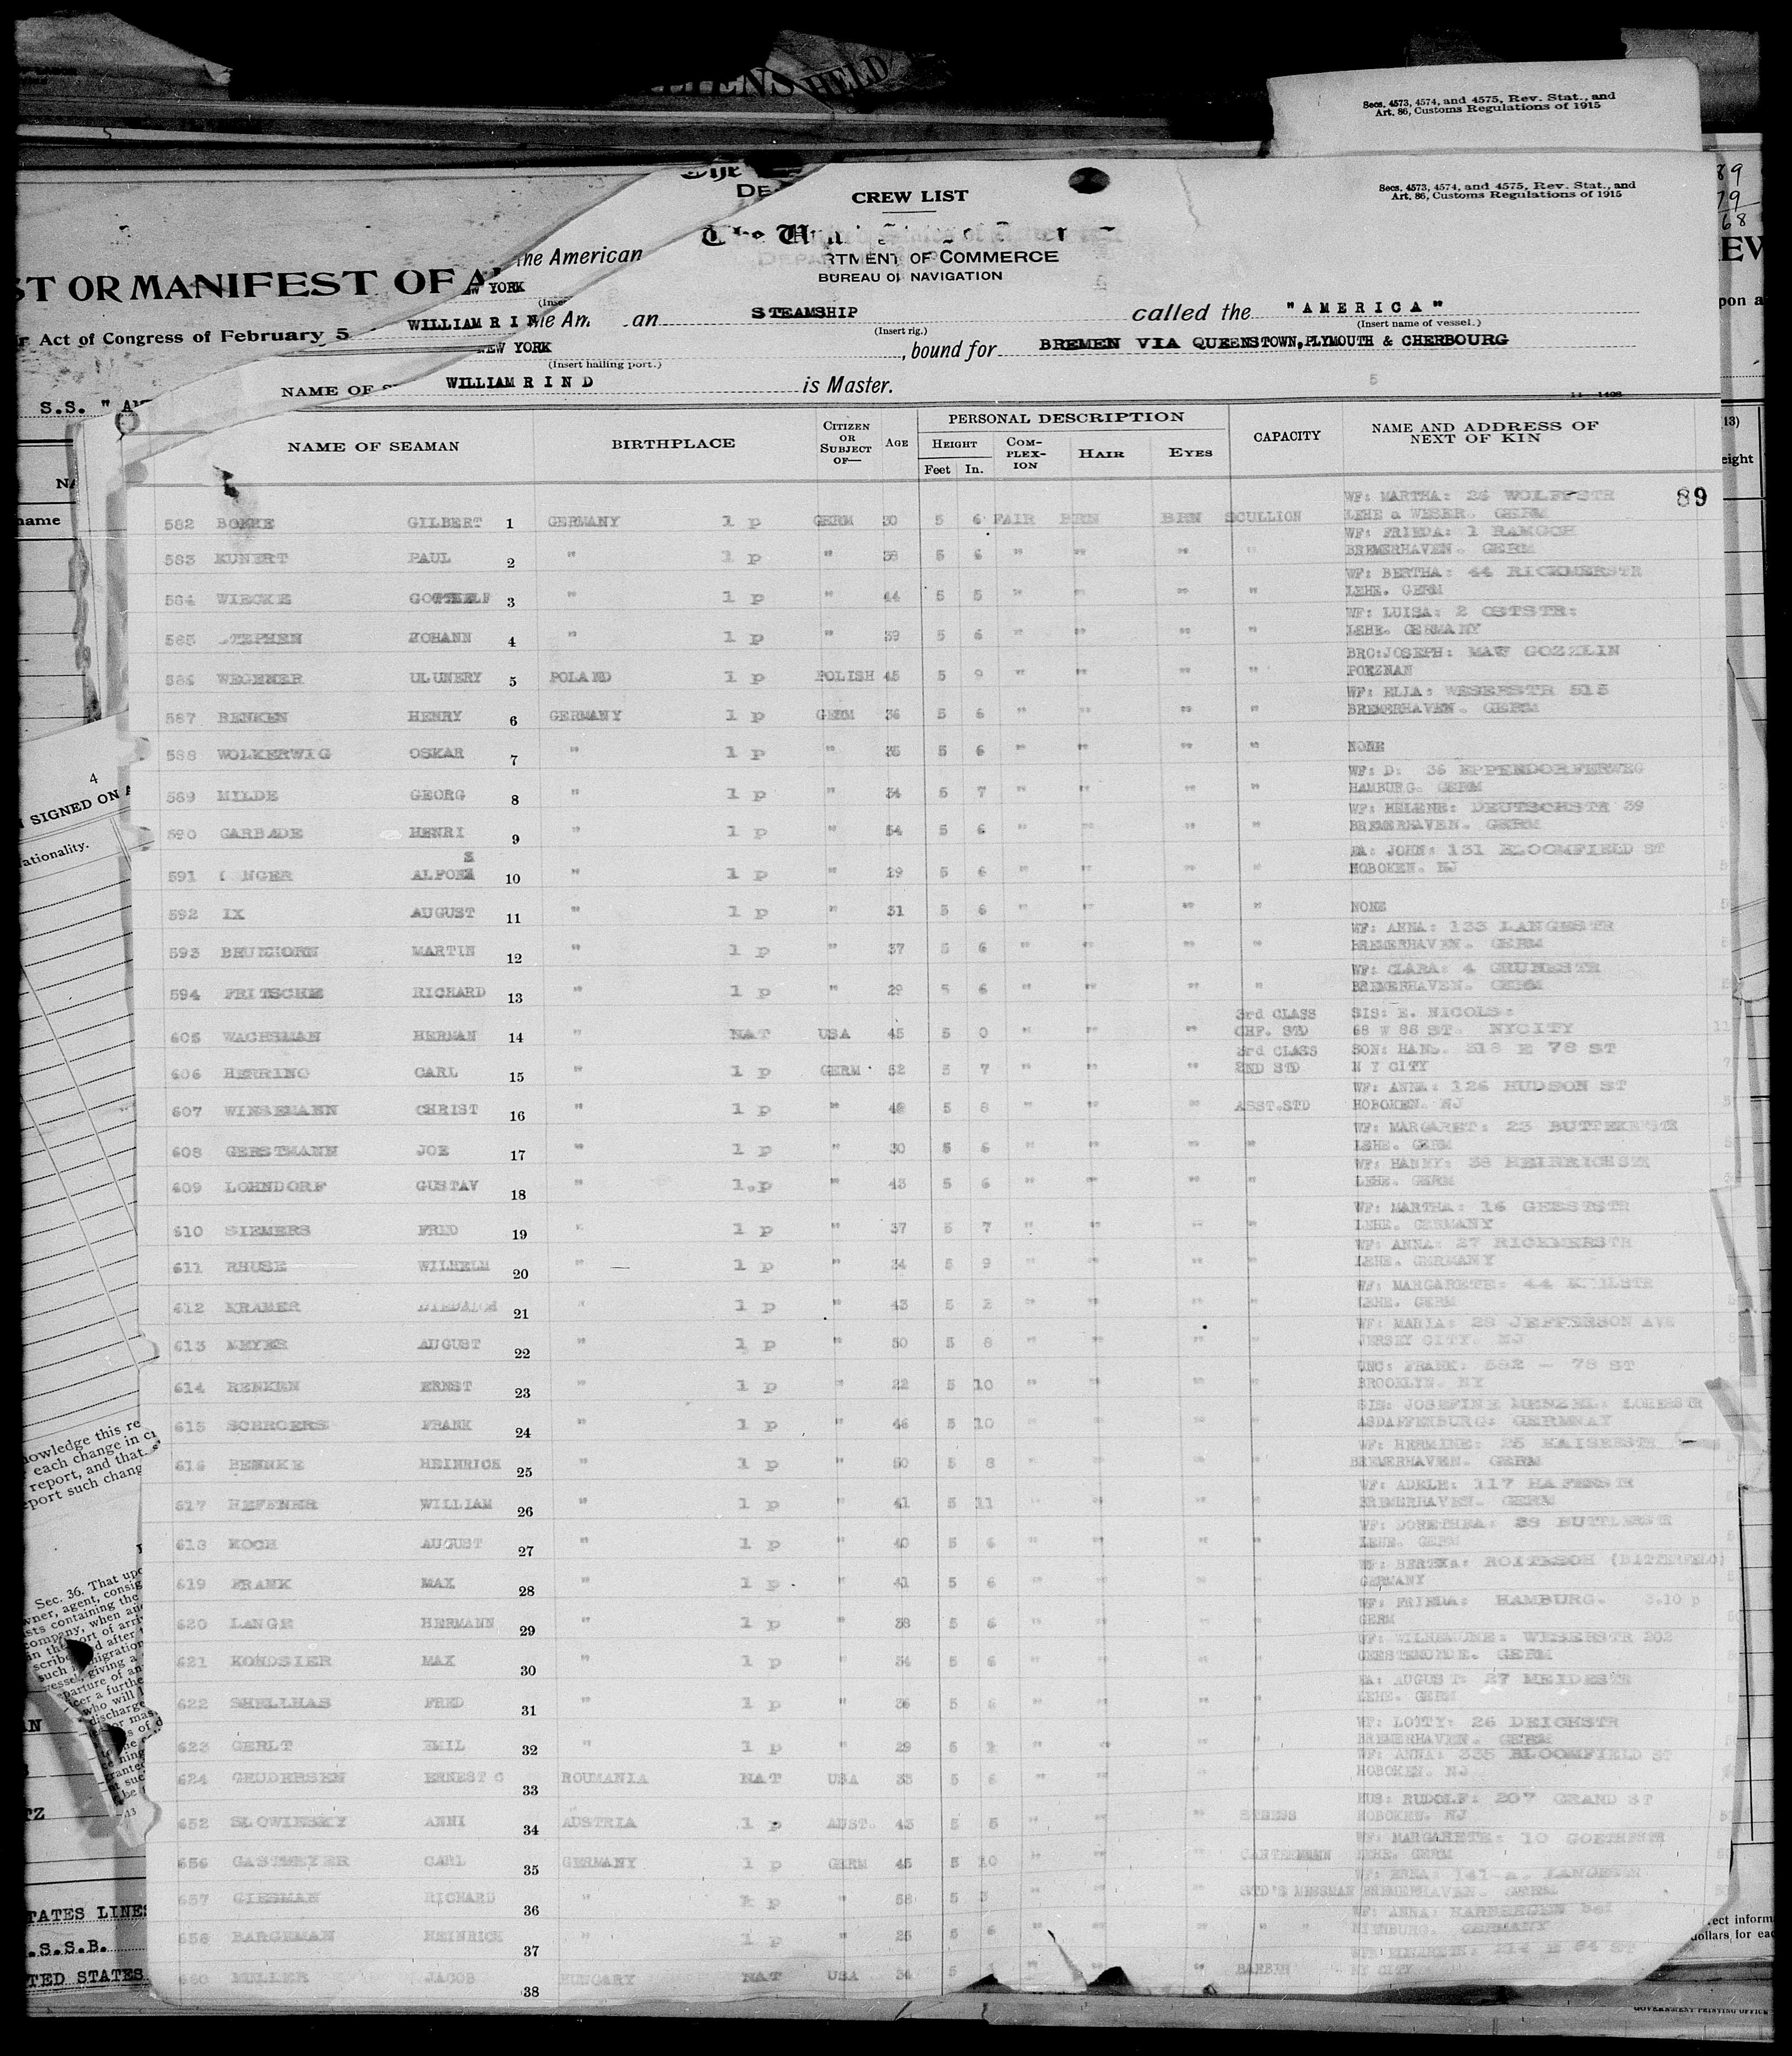 ENS HELD
Secs. 4573, 4574, and 4575, Rev. Stat., and
Art. 86, Customs Regulations of 1915
CREW LIST
Secs. 4573, 4574, and 4575, Rev. Stat., and
Art. 86, Customs Regulations of 1915
89
79
68
DEPARTMENT OF COMMERCE
BUREAU OF NAVIGATION
the American
ST OR MANIFEST OF A
W YORK
Act of Congress of February 5
WILLIAM R I N
an STEAMSHIP called the "AMERICA"
(Insert rig.) (Insert name of vessel.)
NEW YORK , bound for BREMEN VIA QUEENSTOWN, PLYMOUTH & CHERBOURG
(Insert hailing port.)
NAME OF S WILLIAM R I N D is Master.
5
S.S. "
NAME OF SEAMAN BIRTHPLACE CITIZEN OR SUBJECT OF— AGE PERSONAL DESCRIPTION CAPACITY NAME AND ADDRESS OF NEXT OF KIN
HEIGHT COMPLEXION HAIR EYES
Feet In.
89
WF: MARTHA: 26 WOLFFSTR
582 BOKKE GILBERT 1 GERMANY 1 p GERM 30 5 6 FAIR BRN BRN SCULLION LEHE a WESER. GERM
WF: FRIEDA: 1 RAMGOH
583 KUNERT PAUL 2 " 1 p " 38 5 6 " " " " BREMERHAVEN. GERM
WF: BERTHA: 44 RICKMERSTR
584 WIECKE 3 " 1 p " 44 5 5 " " " " LEHE. GERM
WF: LUISA: 2 OSTSTR:
585 STEPHEN JOHANN 4 " 1 p " 39 5 6 " " " " LEHE. GERMANY
BRO: JOSEPH: MAW GOZZLIN
586 WEGENER ULUNERY 5 POLAND 1 p POLISH 45 5 9 " " " " POEZNAN
WF: ELLA: WESERSTR 515
587 RENKEN HENRY 6 GERMANY 1 p GERM 36 5 6 " " " " BREMERHAVEN. GERM
588 WOLKERWIG OSKAR 7 " 1 p " 35 5 6 " " " " NONE
WF: D: 36 EPPENDORFERWEG
589 MILDE GEORG 8 " 1 p " 34 5 7 " " " " HAMBURG. GERM
WF: HELENE: DEUTSCHSTR 39
590 GARBADE HENRI 9 " 1 p " 54 5 6 " " " " BREMERHAVEN. GERM
FA: JOHN: 131 BLOOMFIELD ST
591 NGER ALFONS 10 " 1 p " 29 5 6 " " " " HOBOKEN. NJ
592 IX AUGUST 11 " 1 p " 31 5 6 " " " " NONE
WF: ANNA: 133 LANGESTR
593 BRUNHORN MARTIN 12 " 1 p " 37 5 6 " " " " BREMERHAVEN. GERM
WF: CLARA: 4 GRUNESTR
594 FRITSCHE RICHARD 13 " 1 p " 29 5 6 " " " " BREMERHAVEN. GERM
3rd CLASS SIS: E. NICOLS:
605 WACHSMAN HERMAN 14 " NAT USA 45 5 0 " " " CHF. STD 68 W 88 ST. NYCITY
3rd CLASS SON: HANS. 318 E 78 ST
606 HERRING CARL 15 " 1 p GERM 52 5 7 " " " 2ND STD N Y CITY
WF: ANNA: 126 HUDSON ST
607 WINSEMANN CHRIST 16 " 1 p " 48 5 8 " " " ASST.STD HOBOKEN. NJ
WF: MARGARET: 23
608 GERSTMANN JOE 17 " 1 p " 30 5 6 " " " " LEHE. GERM
WF: HANNY: 38 HEINRICHSTR
609 LOHNDORF GUSTAV 18 " 1.p " 43 5 6 " " " " LEHE. GERM
WF: MARTHA: 16 GEESTSTR
610 SIEMERS FRED 19 " 1 p " 37 5 7 " " " " LEHE. GERMANY
WF: ANNA: 27 RICKMERSTR
611 RHUSE WILHELM 20 " 1 p " 34 5 9 " " " " LEHE. GERMANY
WF: MARGARETE: 44
612 KRAMER 21 " 1 p " 43 5 2 " " " " LEHE. GERM
WF: MARIA: 28 JEFFERSON AVE
613 MEYER AUGUST 22 " 1 p " 50 5 8 " " " " JERSEY CITY. NJ
UNC: FRANK: 582 - 78 ST
614 RENKEN ERNST 23 " 1 p " 22 5 10 " " " " BROOKLYN. NY
SIS: JOSEFINE MENZEL:
615 SCHROERS FRANK 24 " 1 p " 46 5 10 " " " " ASDAFFENBURG: GERMNAY
WF: HERMINE: 25 KAISERSTR
616 BENNKE HEINRICH 25 " 1 p " 50 5 8 " " " " BREMERHAVEN. GERM
WF: ADELE: 117 HAFENSTR
617 HEFENER WILLIAM 26 " 1 p " 41 5 11 " " " " BREMERHAVEN. GERM
WF: DORETHEA: 38
618 KOCH AUGUST 27 " 1 p " 40 5 6 " " " " LEHE. GERM
WF: BERTHA: ROITZSCH (BITTERFELD)
619 FRANK MAX 28 " 1 p " 41 5 6 " " " " GERMANY
WF: FRIEDA: HAMBURG. 3.10 p
620 LANGE HERMANN 29 " 1 p " 38 5 6 " " " " GERM
WF: WESERSTR 202
621 KOMOSIER MAX 30 " 1 p " 34 5 6 " " " " GEESTEMUNDE. GERM
FA: AUGUST: 27 HEIDESTR
622 SHELLHAS FRED 31 " 1 p " 36 5 6 " " " " LEHE. GERM
WF: LOTTY: 26 DEICHSTR
623 GERLT EMIL 32 " 1 p " 29 5 " " " " BREMERHAVEN. GERM
WF: ANNA: 335 BLOOMFIELD ST
624 GEUDERSEN ERNEST C 33 ROUMANIA NAT USA 33 5 6 " " " " HOBOKEN. NJ
HUS: RUDOLF: 207 GRAND ST
652 SLOWINSKY ANNI 34 AUSTRIA 1 p AUST. 43 5 5 " " " STNESS HOBOKEN. NJ
WF: MARGARETE: 10 GOETHESTR
656 GASTMEYER CARL 35 GERMANY 1 p GERM 45 5 10 " " " CANTEENMANN LEHE. GERM
WF: ERNA: 141-a. LANGESTR
657 GIESMAN RICHARD 36 " 1 p " 58 5 3 " " " STD'S MESSMAN BREMERHAVEN. GERM
WF: ANNA:
658 BARGEMAN HEINRICH 37 " 1 p " 25 5 6 " " " " " NIENBURG. GERMANY
E 84 ST
660 MULLER JACOB 38 HUNGARY NAT USA 34 5 " " " BARBER NY CITY
4
SIGNED ON
ationality.
Sec. 36. That upo
TATES LINES
.S.S.B.
TED STATES
rect inform
dollars for eac
GOVERNMENT PRINTING OFFICE